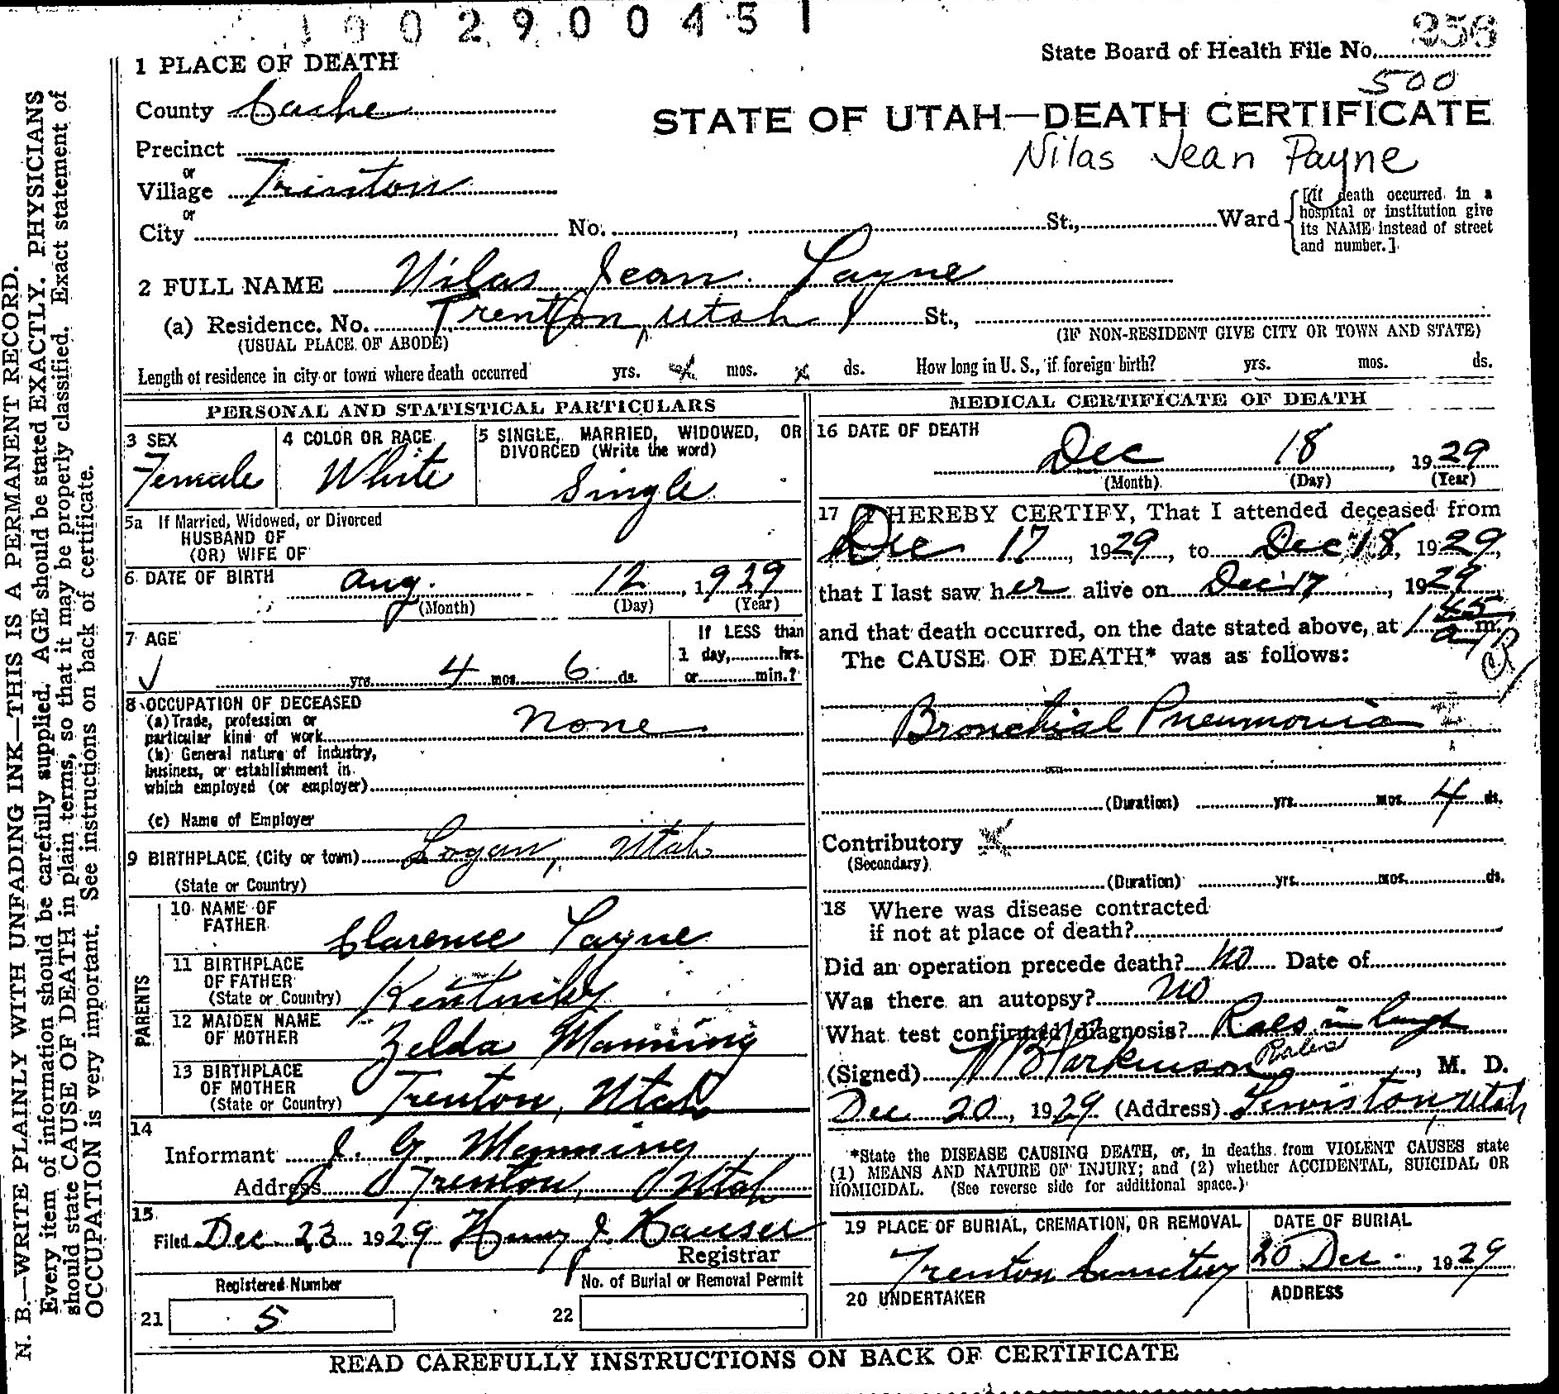 1002900451
State Board of Health File No. 256
500
1 PLACE OF DEATH
County Cache
STATE OF UTAH—DEATH CERTIFICATE
Nilas Jean Payne
Precinct
or
Village Trenton
or
City No. , St., Ward
[If death occurred in a
hospital or institution give
its NAME instead of street
and number.]
2 FULL NAME Nilas Jean Payne
(a) Residence. No. Trenton, Utah St.,
(USUAL PLACE OF ABODE) (IF NON-RESIDENT GIVE CITY OR TOWN AND STATE)
Length of residence in city or town where death occurred yrs. 4 mos. x ds. How long in U. S., if foreign birth? yrs. mos. ds.
PERSONAL AND STATISTICAL PARTICULARS
3 SEX
Female
4 COLOR OR RACE
White
5 SINGLE, MARRIED, WIDOWED, OR
DIVORCED (Write the word)
Single
5a If Married, Widowed, or Divorced
HUSBAND OF
(OR) WIFE OF
6 DATE OF BIRTH Aug. 12, 1929
(Month) (Day) (Year)
7 AGE
yrs. 4 mos. 6 ds.
If LESS than
1 day, hrs.
or min.?
8 OCCUPATION OF DECEASED
(a) Trade, profession or
particular kind of work None
(b) General nature of industry,
business, or establishment in
which employed (or employer)
(c) Name of Employer
9 BIRTHPLACE (City or town) Logan, Utah
(State or Country)
PARENTS
10 NAME OF
FATHER Clarence Payne
11 BIRTHPLACE
OF FATHER
(State or Country) Kentucky
12 MAIDEN NAME
OF MOTHER Zelda Manning
13 BIRTHPLACE
OF MOTHER
(State or Country) Trenton, Utah
14
Informant J. G. Manning
Address Trenton, Utah
15
Filed Dec 23 1929 Henry J. Hauser
Registrar
Registered Number
21 5
No. of Burial or Removal Permit
22
MEDICAL CERTIFICATE OF DEATH
16 DATE OF DEATH
Dec 18, 1929
(Month) (Day) (Year)
17 I HEREBY CERTIFY, That I attended deceased from
Dec 17, 1929, to Dec 18, 1929,
that I last saw her alive on Dec 17, 1929
and that death occurred, on the date stated above, at 1 45 a m.
The CAUSE OF DEATH* was as follows:
Bronchial Pneumonia
(Duration) yrs. mos. 4 ds.
Contributory x
(Secondary)
(Duration) yrs. mos. ds.
18 Where was disease contracted
if not at place of death?
Did an operation precede death? No Date of
Was there an autopsy? No
What test confirmed diagnosis? Rales in lungs
Rales
(Signed) Parkinson, M. D.
Dec 20, 1929 (Address) Lewiston, Utah
*State the DISEASE CAUSING DEATH, or, in deaths from VIOLENT CAUSES state
(1) MEANS AND NATURE OF INJURY; and (2) whether ACCIDENTAL, SUICIDAL OR
HOMICIDAL. (See reverse side for additional space.)
19 PLACE OF BURIAL, CREMATION, OR REMOVAL
Trenton Cemetery
DATE OF BURIAL
20 Dec, 1929
20 UNDERTAKER
ADDRESS
READ CAREFULLY INSTRUCTIONS ON BACK OF CERTIFICATE
N. B.—WRITE PLAINLY WITH UNFADING INK—THIS IS A PERMANENT RECORD.
Every item of information should be carefully supplied. AGE should be stated EXACTLY. PHYSICIANS
should state CAUSE OF DEATH in plain terms, so that it may be properly classified. Exact statement of
OCCUPATION is very important. See instructions on back of certificate.